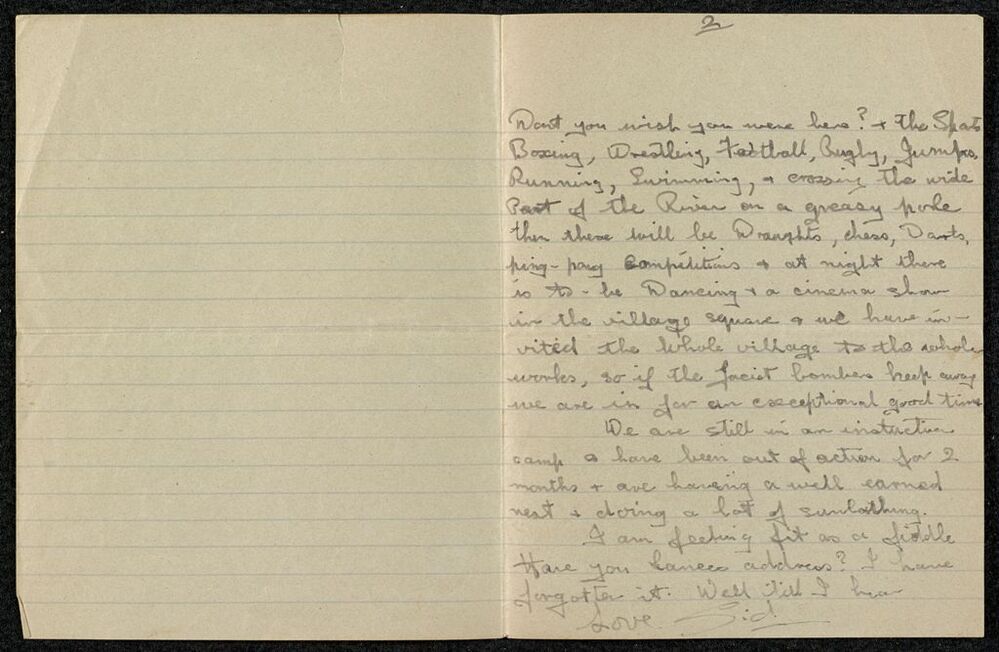 2
Dont you wish you were here? + the Sports
Boxing, Wrestling, Football, Rugby, Jumping
Running, Swimming, + crossing the wide
Part of the River on a greasy pole
then there will be Draughts, chess, Darts,
ping-pong Competitions + at night there
is to-be Dancing + a cinema show
in the village square + we have in-
vited the whole village to the whole
works, so if the facist bombers keep away
we are in for an exceptional good time
We are still in an instruction
camp & have been out of action for 2
months + are having a well earned
rest + doing a lot of sunbathing.
I am feeling fit as a fiddle
Have you address? I have
forgotten it. Well till I hear
Love Sid.